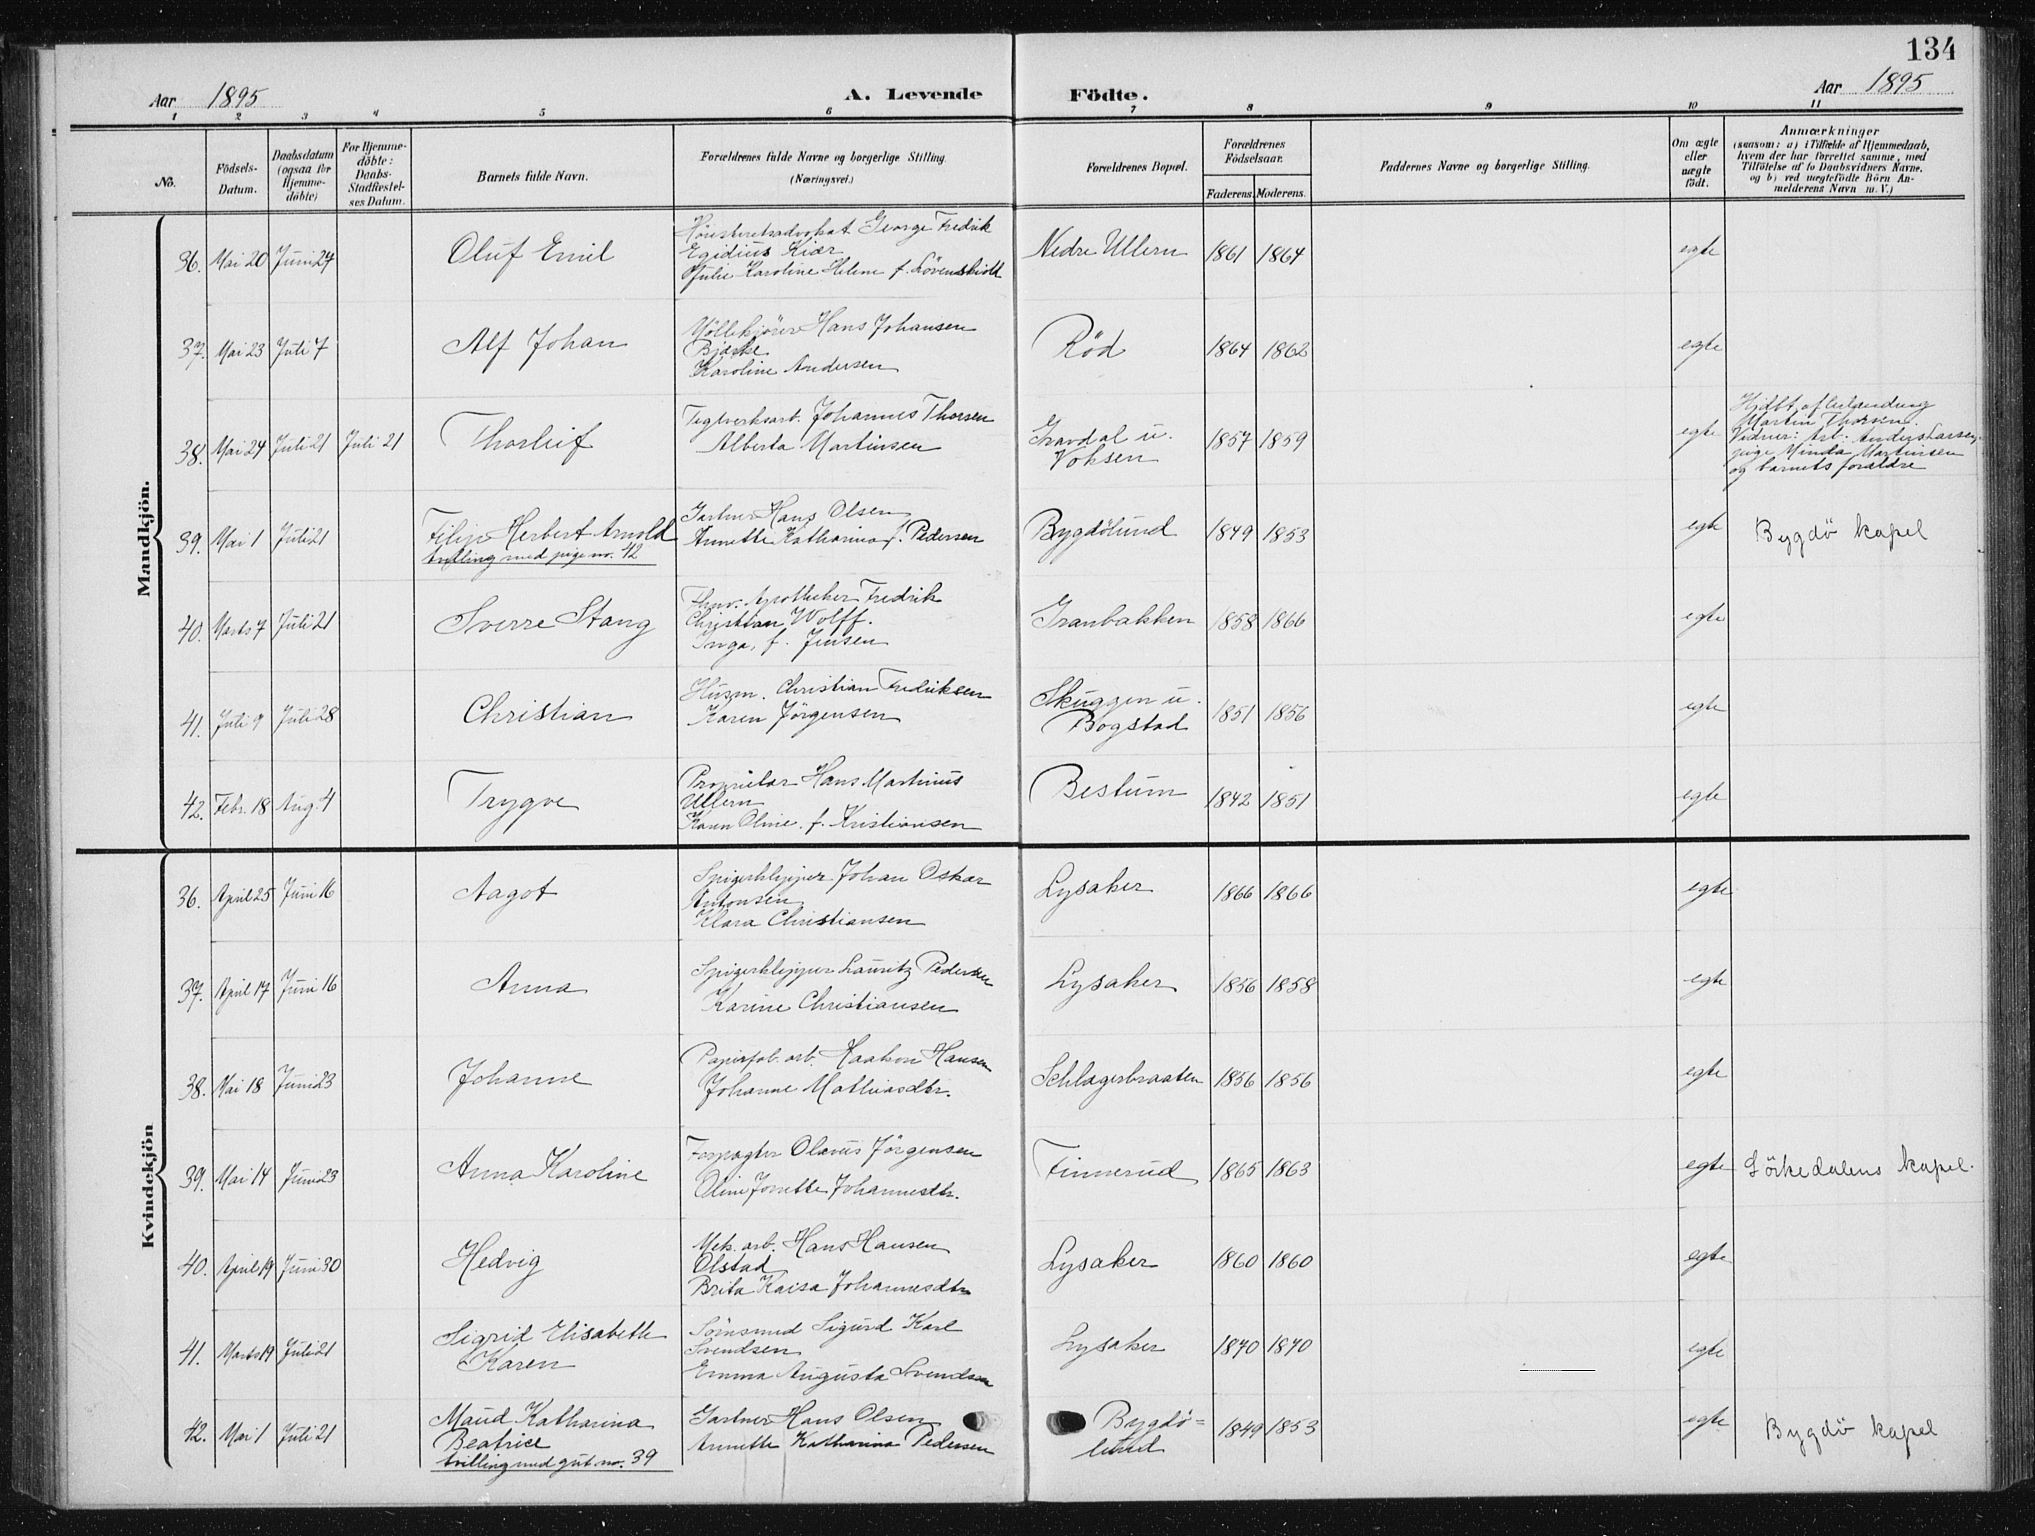 134
Aar 1895 A. Levende Födte. Aar 1895
1 2 3 4 5 6 7 8 9 10 11
No.
Födsels-
Datum.
Daabsdatum
(ogsaa for
Hjemme-
döbte)
For Hjemme-
döbte:
Daabs-
Stadfæstel-
ses Datum.
Barnets fulde Navn.
Forældrenes fulde Navne og borgerlige Stilling.
(Næringsvei.)
Forældrenes Bopæl.
Forældrenes
Födselsaar.
Faderens. Moderens.
Faddernes Navne og borgerlige Stilling.
Om ægte
eller
uægte
födt.
Anmærkninger
(saasom: a) i Tilfælde af Hjemmedaab,
hvem der har forrettet samme, med
Tilföielse af to Daabsvidners Navne,
og b) ved uægtefödte Börn An-
melderens Navn m. V.)
Mandkjön.
36. Mai 20 Juni 24 Oluf Emil
Høiesteretsadvokat George Fredrik
Egidius Kiær
Julie Karoline Helene f. Løvenskiold
Nedre Ullern 1861 1864 egte
37. Mai 23 Juli 7 Alf Johan
Møllekjører Hans Johansen
Bjerke
Karoline Andersen
Rød 1864 1862 egte
38. Mai 24 Juli 21 Juli 21 Thorleif
Teglverksarb. Johannes Thorsen
Alberta Martinsen
Gravdal u.
Voksen
1857 1859 egte
Hjdbt. af
Martin Thorsen.
Vidner: Arb. Anders Larsen,
pige Minda Martinsen
og barnets forældre
39. Mai 1 Juli 21 Filip Herbert Arnold
tvilling med pige no. 42
Gartner Hans Olsen
Annette Katharina f. Pedersen
Bygdølund 1849 1853 egte Bygdö kapel
40. Marts 7 Juli 21 Sverre Stang
Apotheker Fredrik
Christian Wolff.
Inga, f. Jensen
Granbakken 1858 1866 egte
41. Juli 9 Juli 28 Christian
Husm. Christian Fredriksen
Karen Jørgensen
Skuggen u.
Bogstad
1851 1856 egte
42. Febr. 18 Aug. 4 Trygve
Proprietær Hans Martinius
Ullern
Karen Oline f. Kristiansen
Bestum 1842 1851 egte
Kvindekjön
36. April 25 Juni 16 Aagot
Spigerklipper Johan Oskar
Antonsen
Klara Christiansen
Lysaker 1866 1866 egte
37. April 17 Juni 16 Anna
Spigerklipper Lauritz Pedersen
Karine Christiansen
Lysaker 1856 1858 egte
38. Mai 18 Juni 23 Johanne
Papirfab. arb. Haakon Hansen
Johanne Mathiasdtr.
Schlagerbraaten 1856 1856 egte
39. Mai 14 Juni 23 Anna Karoline
Forpagter Olavus Jørgensen
Oline Jonette Johannesdtr.
Finnerud 1865 1863 egte Sörkedalens kapel.
40. April 19 Juni 30 Hedvig
Mek. arb. Hans Hansen
Olstad
Brita Kaisa Johannesdtr
Lysaker 1860 1860 egte
41. Marts 19 Juli 21 Sigrid Elisabeth
Karen
Sømsmed Sigurd Karl
Svendsen
Emma Augusta Svendsen
Lysaker 1870 1870 egte
42. Mai 1 Juli 21 Maud Katharina
Beatrice
tvilling med gut no. 39
Gartner Hans Olsen
Annette Katharina Pedersen
Bygdø=
lund
1849 1853 egte Bygdö kapel